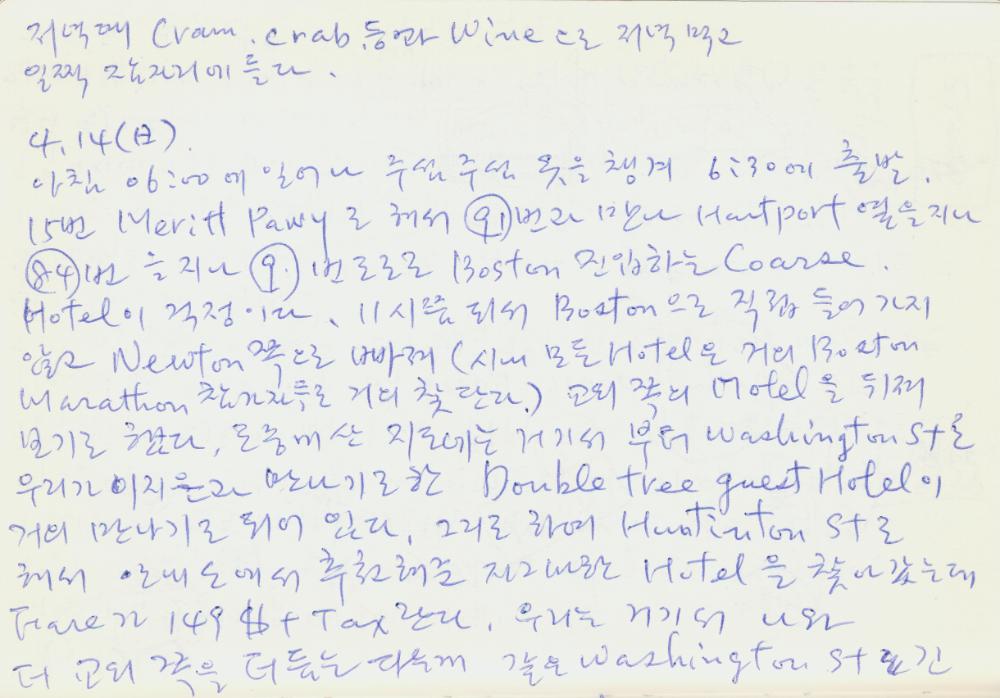 저녁때 Cram. crab 등과 Wine으로 저녁 먹고
일찍 잠자리에 들다.
4.14(日).
아침 06:00에 일어나 주섬주섬 옷을 챙겨 6:30에 출발.
15번 Meritt Pawy로 해서 91번과 만나 Hartport 옆을 지나
84번을 지나 9번 도로로 Boston 진입하는 Coarse.
Hotel이 걱정이다. 11시쯤 되서 Boston으로 직접 들어가지
않고 Newton쪽으로 빠져 (시내 모든 Hotel은 거의 Boston
Marathon 참가자들로 거의 찾단다.) 교외 쪽의 Motel을 뒤져
보기로 했다. 도중에 산 지도에는 거기서 부터 Washington St로
우리가 이지은과 만나기로한 Double tree guest Hotel이
거의 만나기로 되어 있다. 그리로 하여 Huntinton St로
해서 안내소에서 추천해준 Hotel을 찾아 갔는데
Fare가 149$+Tax란다. 우리는 거기서 나와
더 교외 쪽을 더듬는 같은 Washington St